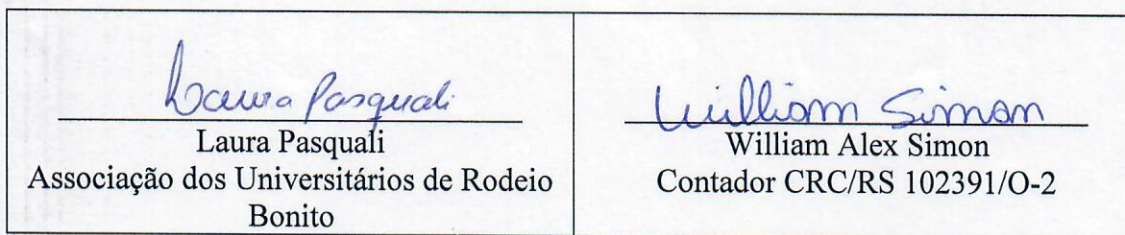 Laura Pasquali
Laura Pasquali
Associação dos Universitários de Rodeio
Bonito
William Simon
William Alex Simon
Contador CRC/RS 102391/O-2